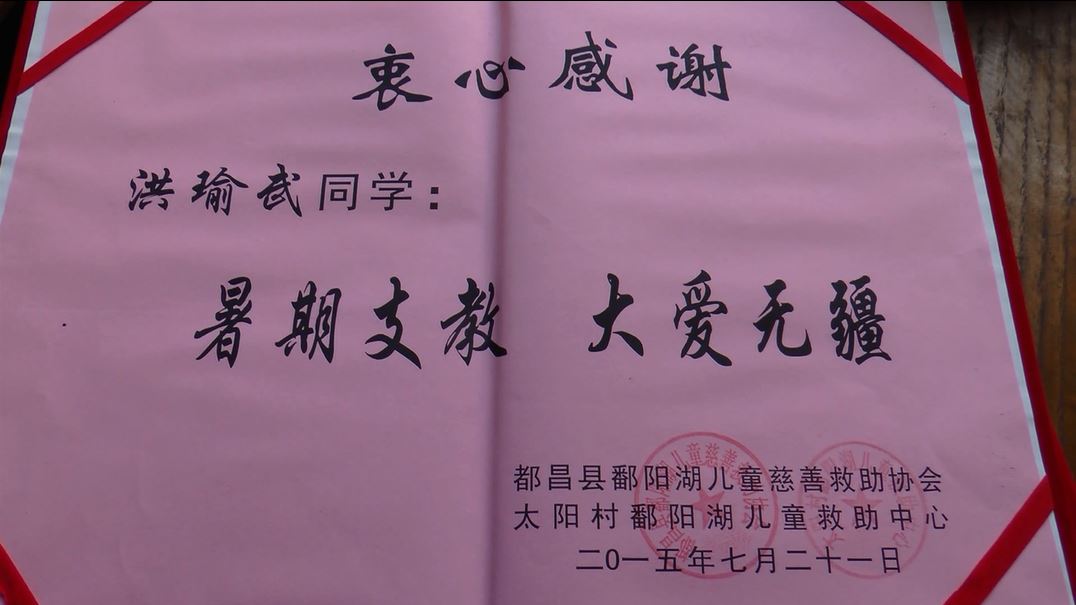 衷心感谢
洪瑜武同学：
暑期支教 大爱无疆
都昌县鄱阳湖儿童慈善救助协会
太阳村鄱阳湖儿童救助中心
二0一五年七月二十一日